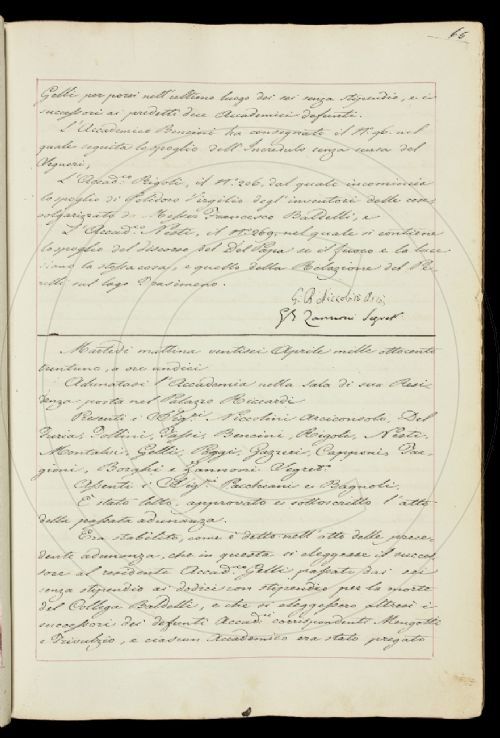 66
Gelli per porsi nell'ultimo luogo dei sei senza stipendio, e i
successori ai predetti due Accademici defunti.
L'Accademico Bencini ha consegnato il N.º 96. nel
quale seguita lo spoglio dell'Incredulo senza scusa del
Segneri,
L'Accad.co Rigoli, il N.º 206, dal quale incomincia
lo spoglio di Polidoro Virgilio degl'inventori delle cose
volgarizzato da Messer Francesco Baldelli, e
L'Accad.co Nesti, il N.º 269. nel quale si contiene
lo spoglio del discorso del Del Papa se il fuoco e la luce
siano la stessa cosa, e quello della Relazione del Pe-
relli sul lago Trasimeno.
G. B. Niccolini
G B Zannoni Segret
Martedì mattina ventisei Aprile mille ottocento
trentuno, a ore undici
Adunatasi l'Accademia nella sala di sua Resi-
denza posta nel Palazzo Riccardi
Presenti i Sig.ri Niccolini Arciconsolo, Del
Furia, Follini, Tassi, Bencini, Rigoli, Nesti,
Montalvi, Gelli, Poggi, Gazzeri, Capponi, Tar-
gioni, Borghi e Zannoni Segret.º
Assenti i Sig.ri Pucheani e Bagnoli.
È stato letto, approvato e sottoscritto l'atto
della passata adunanza.
Era stabilito, come è detto nell'atto della prece-
dente adunanza, che in questa si eleggesse il succes-
sore al residente Accad.co Gelli passato dai sei
senza stipendio ai dodici con stipendio per la morte
del Collega Baldelli, e che si eleggessero altresì i
successori dei defunti Accad.i corrispondenti Mengotti
e Trivulzio, e ciascun Accademico era stato pregato